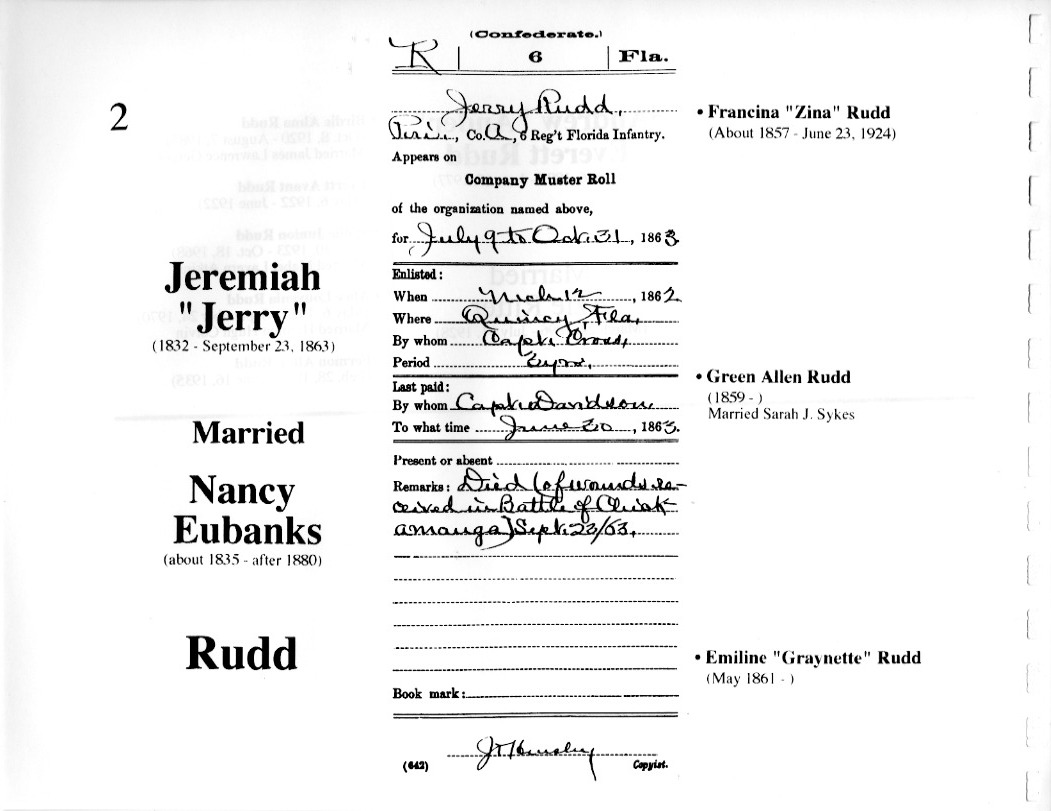 2
Jeremiah
"Jerry"
(1832 - September 23, 1863)
Married
Nancy
Eubanks
(about 1835 - after 1880)
Rudd
(Confederate.)
R | 6 | Fla.
Jerry Rudd,
Priv., Co. A, 6 Reg't Florida Infantry.
Appears on
Company Muster Roll
of the organization named above,
for July 9 to Oct. 31, 1863.
Enlisted:
When Mch 12, 1862
Where Quincy, Fla,
By whom Capt.
Period 3 yrs.
Last paid:
By whom Capt. Davidson
To what time June 30, 1863.
Present or absent
Remarks: Died (of wounds re-
ceived in Battle of Chick-
amauga) Sept. 23/63.
Book mark:
(642) Copyist.
• Francina "Zina" Rudd
(About 1857 - June 23, 1924)
• Green Allen Rudd
(1859 - )
Married Sarah J. Sykes
• Emiline "Graynette" Rudd
(May 1861 - )